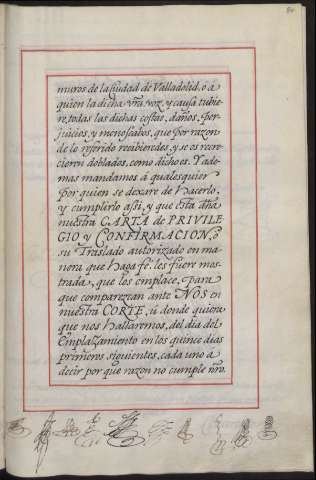 muros de la ciudad de Valladolid, ó á
quien la dicha vra. voz, y causa tubie-
re, todas las dichas costas, daños, per-
juicios, y menoscabos, que por razon
de lo referido recibieredes, y se os recre-
cieren doblados, como dicho es. Y ade-
mas mandamos á qualesquier
por quien se dexare de hacerlo,
y cumplirlo assi, y que esta dha
nuestra CARTA de PRIVILE-
GIO y CONFIRMACION, ó
su Traslado autorizado en ma-
nera que haga fé, les fuere mos-
trada, que los emplace, para
que comparezcan ante NOS en
nuestra CORTE, ú donde quiera
que nos hallaremos, del dia del
Emplazamiento en los quince dias
primeros siguientes, cada uno a
decir por que razon no cumple nro.